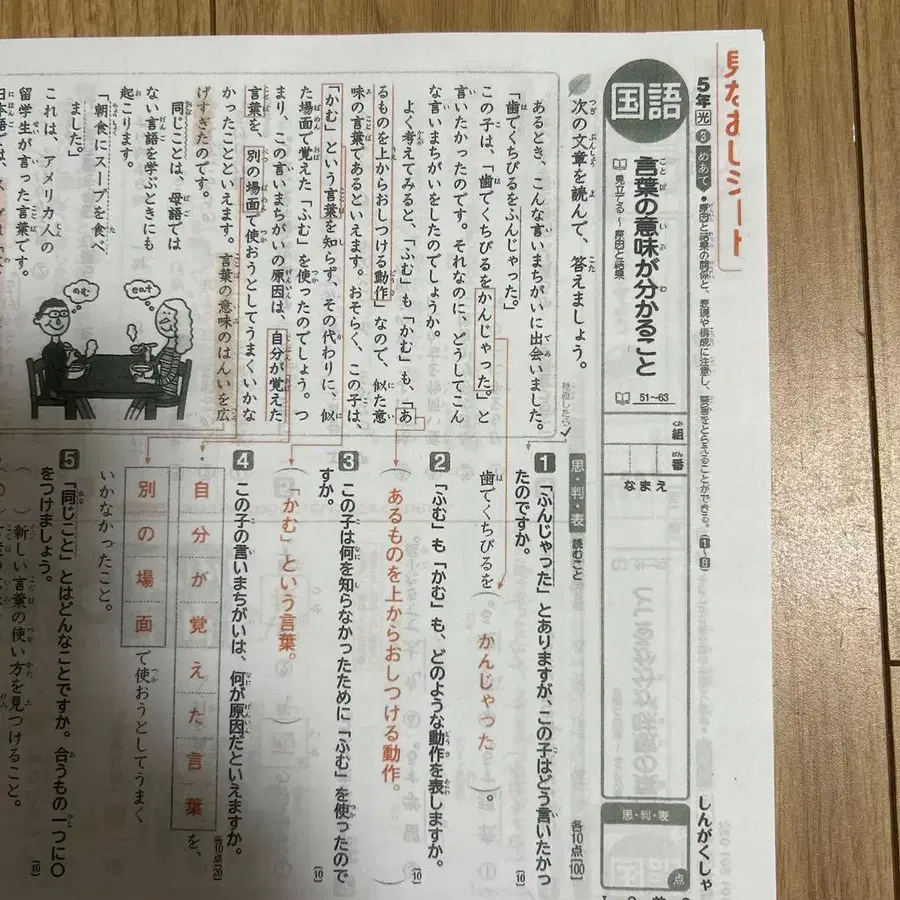 見なおしシート
5年 光 3 めあて ●原因と結果の関係と、表現や構成に注意し、要旨をとらえることができる。(1~8)
しんがくしゃ
国語
言葉の意味が分かること
見立てる～原因と結果
51~63
組
番
なまえ
思・判・表
国語
点
次の文章を読んで、答えましょう。
見直したら✓
思・判・表 読むこと
各10点[100]
あるとき、こんな言いまちがいに出会いました。
「歯でくちびるをふんじゃった。」
この子は、「歯でくちびるをかんじゃった。」と
言いたかったのです。それなのに、どうしてこん
な言いまちがいをしたのでしょうか。
よく考えてみると、「ふむ」も「かむ」も、「あ
るものを上からおしつける動作」なので、似た意
味の言葉であるといえます。おそらく、この子は、
「かむ」という言葉を知らず、その代わりに、似
た場面で覚えた「ふむ」を使ったのでしょう。つ
まり、この言いまちがいの原因は、自分が覚えた
言葉を、別の場面で使おうとしてうまくいかな
かったことといえます。言葉の意味のはんいを広
げすぎたのです。
同じことは、母語では
ない言語を学ぶときにも
起こります。
「朝食にスープを食べ
ました。」
これは、アメリカ人の
留学生が言った言葉です。
のむ
eat
1 「ふんじゃった」とありますが、この子はどう言いたかっ
たのですか。
[10]
歯でくちびるを(かんじゃった)。
2 「ふむ」も「かむ」も、どのような動作を表しますか。
[10]
(あるものを上からおしつける動作。)
3 この子は何を知らなかったために「ふむ」を使ったので
すか。
[10]
(「かむ」という言葉。)
4 この子の言いまちがいは、何が原因だといえますか。
各10点[20]
自分が覚えた言葉を、
別の場面で使おうとしてうまく
いかなかったこと。
5 「同じこと」とはどんなことですか。合うもの一つに○
をつけましょう。
[10]
( )新しい言葉の使い方を見つけること。